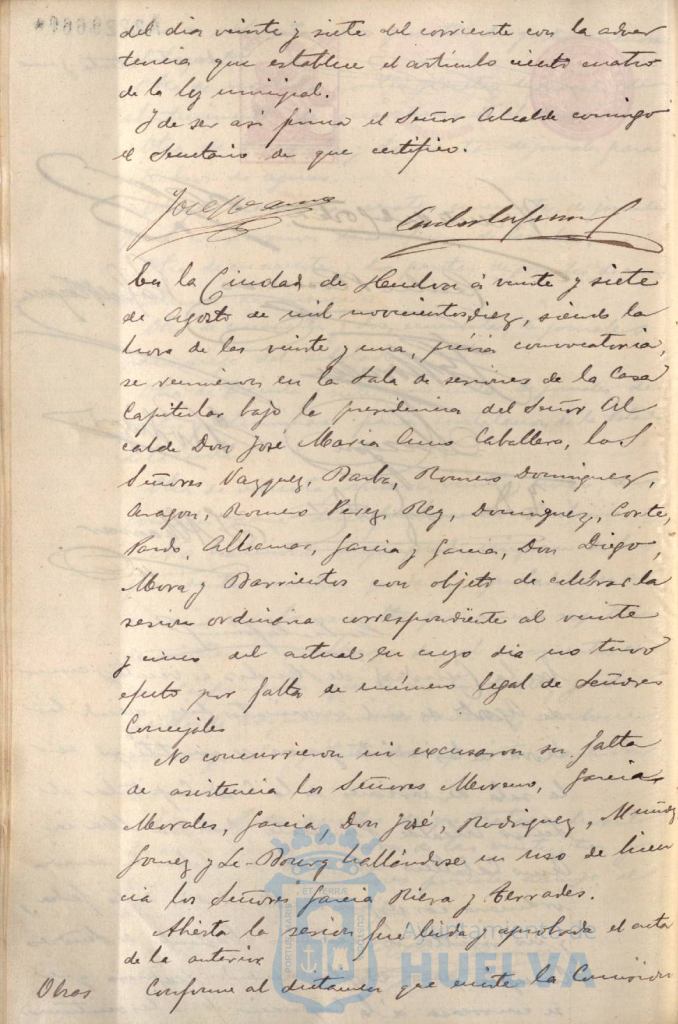 del dia veinte y siete del corriente con la adver
tencia que establece el artículo ciento cuatro
de la ley municipal.
Y de ser asi firma el Señor Alcalde conmigo
el Secretario de que certifico.
En la Ciudad de Huelva á veinte y siete
de Agosto de mil novecientos diez, siendo la
hora de las veinte y una, prévia convocatoria,
se reunieron en la Sala de sesiones de la Casa
Capitular bajo la presidencia del Señor Al
calde Don José Maria Amo Caballero, los
Señores Vazquez, Barba, Romero Dominguez,
Aragon, Romero Perez, Rey, Dominguez, Corte,
Pardo, Alhamar, Garcia y Garcia, Don Diego,
Mora y Barrientos con objeto de celebrar la
sesion ordinaria correspondiente al veinte
y cinco del actual en cuyo dia no tuvo
efecto por falta de número legal de Señores
Concejales
No concurrieron ni excusaron su falta
de asistencia los Señores Moreno, Garcia
Morales, Garcia, Don José, Rodriguez, Muñoz
Gomez y Le-Bourg hallándose en uso de licen
cia los Señores Garcia Riera y Terrades.
Abierta la sesion fué leida y aprobada el acta
de la anterior
Obras Conforme al dictamen que emite la Comision
PORTUS MARIS ET TERRAE CUSTODIA
Ayuntamiento de
HUELVA